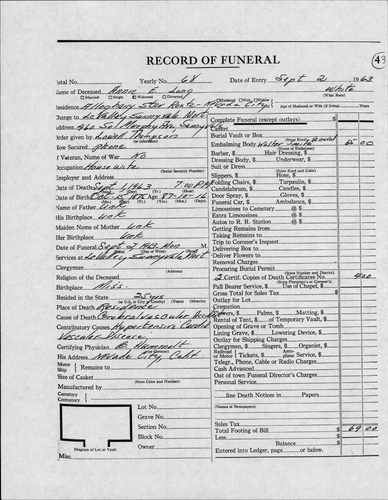 RECORD OF FUNERAL
43
Total No. Yearly No. 68 Date of Entry Sept 2 1963
Name of Deceased Annie E. Long White
Married Single Widowed Divorced (What Race)
Residence Alleghany Star Route - Nevada City
Husband Wife Widow
Age of Husband or Wife (if living) Years
Charge to
Address
Order given by Lowell Thompson
How Secured Phone
If Veteran, Name of War No
Occupation Housewife
(Social Security Number)
Employer and Address
Date of Death Sept 1, 1963 7:00 PM
Date of Birth 1876 Age 87-10-16
Name of Father Unk
His Birthplace Unk
Maiden Name of Mother Unk
Her Birthplace Unk
Date of Funeral Sept 2 1963 Mon M.
Services at
Clergyman
(Address)
Religion of the Deceased
Birthplace Miss.
Resided in the State 25 yrs
Place of Death Residence
Cause of Death Cerebral vascular
Contributory Causes Hypertensive Cardio
Vascular Disease
Certifying Physician
His Address Nevada City, Calif
Motor
Ship
Remains to
Size of Casket
(State Color and Number)
Manufactured by
Cemetery
Crematory
Lot No.
Grave No.
Section No.
Block No.
Owner
Diagram of Lot or Vault
Misc.
Complete Funeral (except outlays) $
Casket
Burial Vault or Box
(State Kind)
Embalming Body Walter Smith 65 00
(Name of Embalmer)
Barber, $ Hair Dressing, $
Dressing Body, $ Underwear, $
Suit or Dress
(State Kind and Color)
Slippers, $ Hose, $
Folding Chairs, $ Tarpaulin, $
Candelabrum, $ Candles, $
Door Spray, $ Gloves, $
Funeral Car, $ Ambulance, $
Limousines to Cemetery @ $
Extra Limousines @ $
Autos to R. R. Station @ $
Getting Remains from
Taking Remains to
Trip to Coroner's Inquest
Delivering Box to
Deliver Flowers to
Removal Charges
Procuring Burial Permit
(State Number and District)
2 Certif. Copies of Death Certificates No. 4 00
(State Physician's or Coroner's)
Pall Bearer Service, $ Use of Chapel, $
Gross Total for Sales Tax $
Outlay for Lot
Cremation
Flowers, $ Palms, $ Matting, $
Rental of Tent, $ of Temporary Vault, $
Opening of Grave or Tomb
Lining Grave, $ Lowering Device, $
Outlay for Shipping Charges
Clergymen, $ Singers, $ Organist, $
Railroad
or Motor } Tickets, $ Aero-
plane Service, $
Telegr., Phone, Cable or Radio Charges
Cash Advanced
Out of town Funeral Director's Charges
Personal Service
line Death Notices in Papers
(Names of Newspapers)
Sales Tax
Total Footing of Bill $ 69 00
Less
Balance $
Entered into Ledger, page or below.